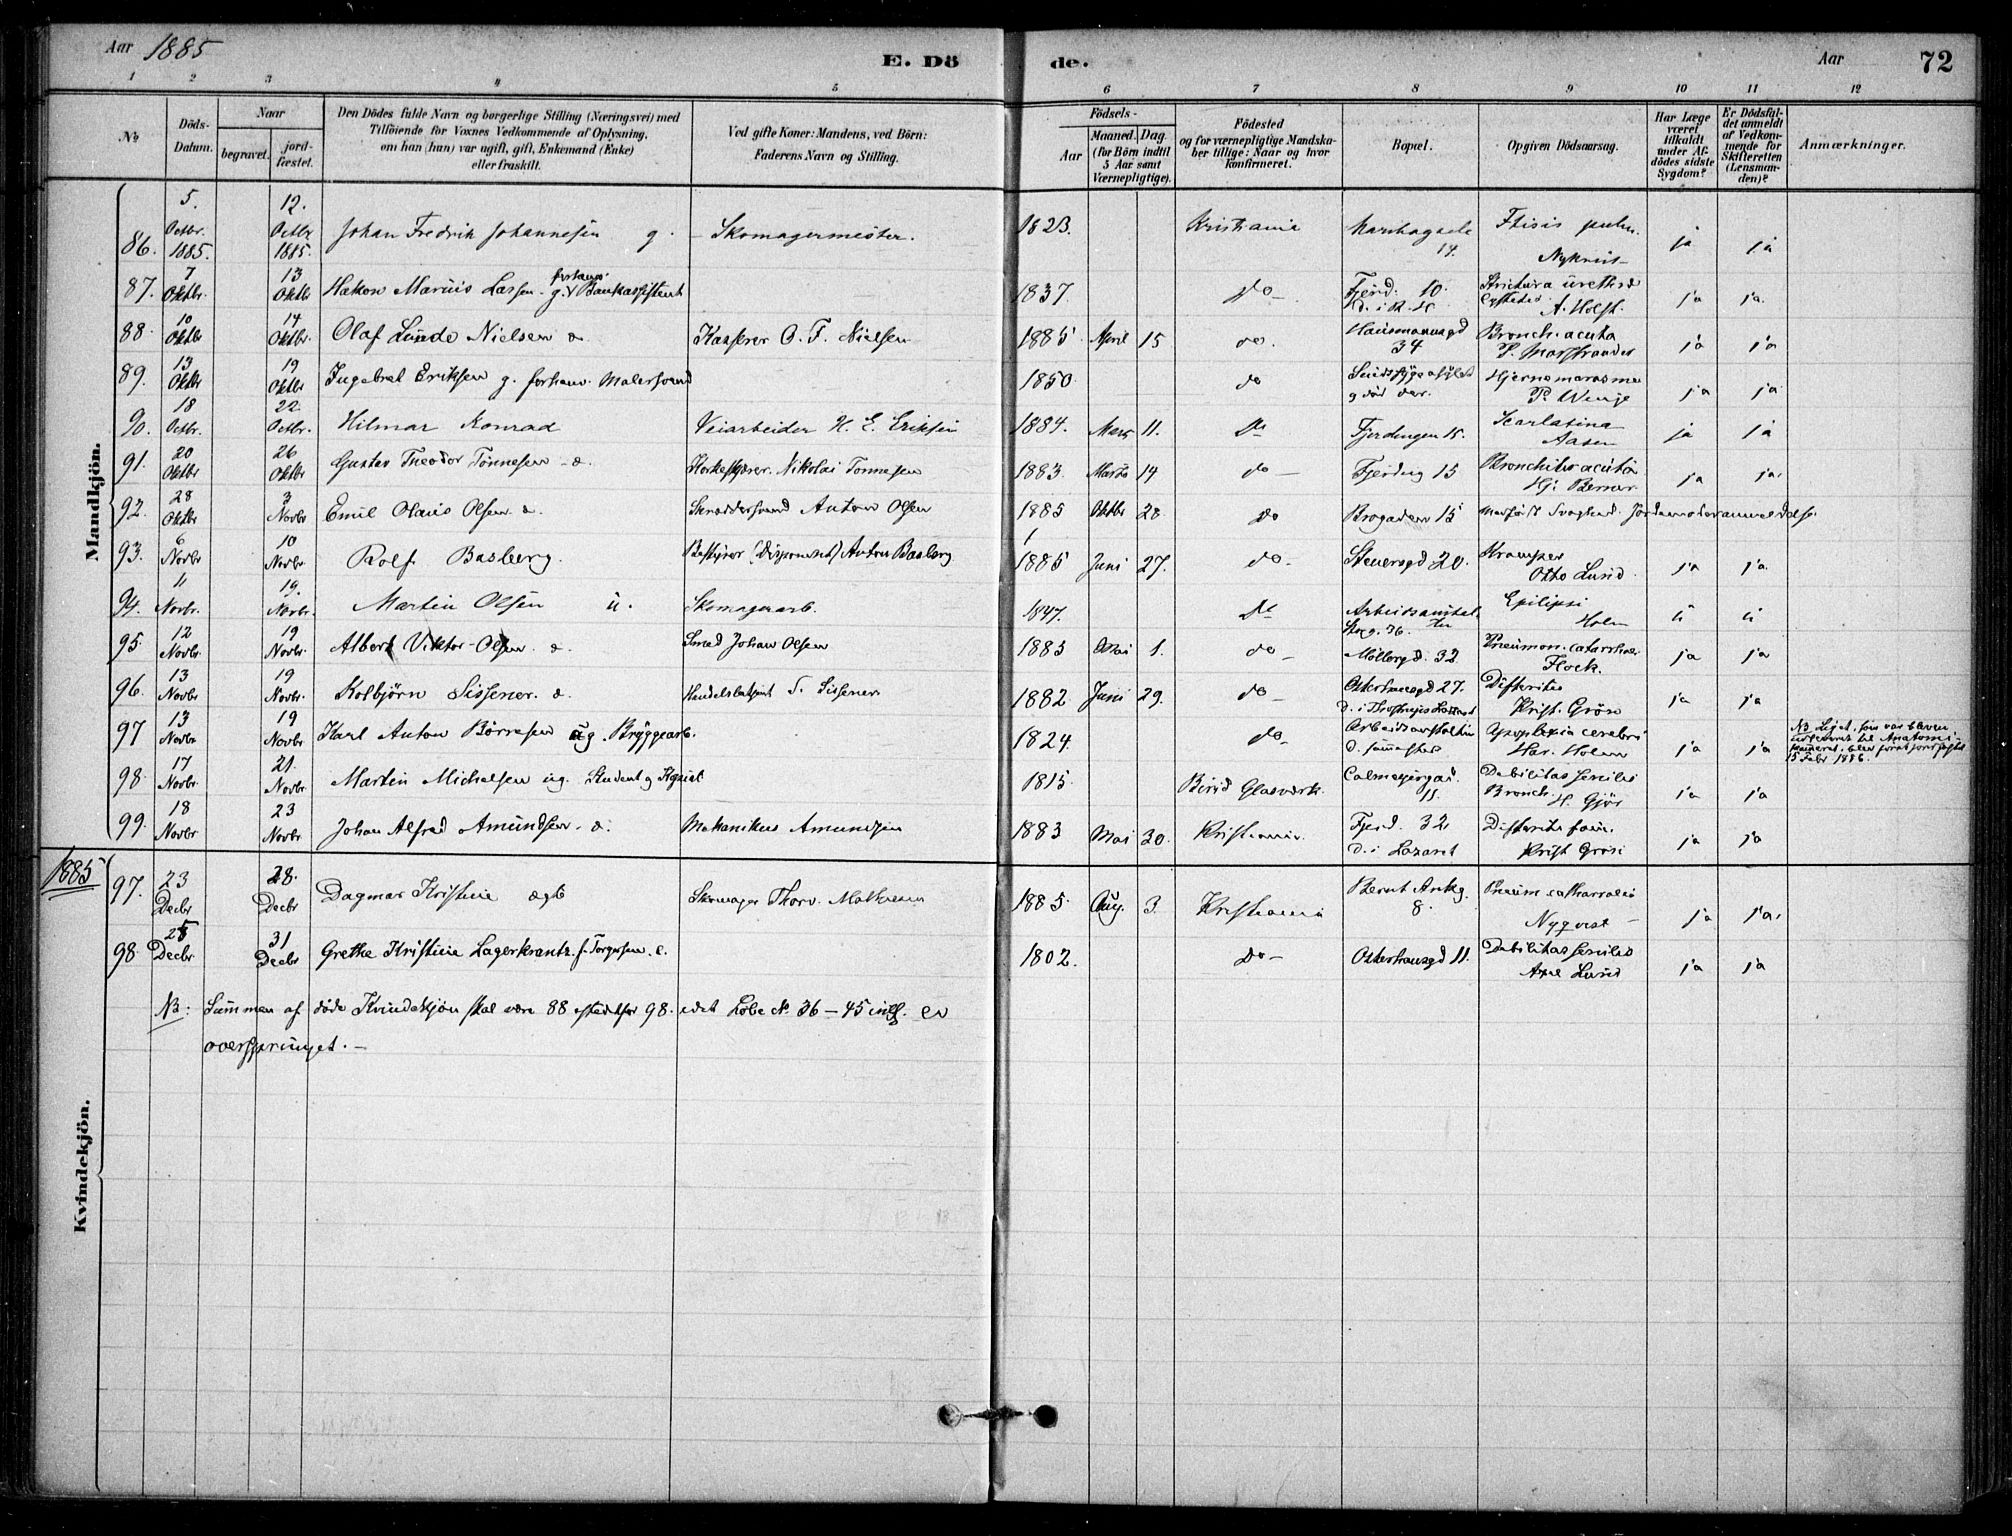 Aar 1885
E. Dö
de.
Aar
72
1 2 3 4 5 6 7 8 9 10 11 12
No
Döds-
Datum.
Naar
begravet.
jord-
fæstet.
Den Dödes fulde Navn og borgerlige Stilling (Næringsvei) med
Tilföiende for Voxnes Vedkommende af Oplysning,
om han (hun) var ugift, gift, Enkemand (Enke)
eller fraskilt.
Ved gifte Koner: Mandens, ved Börn:
Faderens Navn og Stilling.
Födsels-
Aar
Maaned. Dag.
(for Börn indtil
5 Aar samt
Værnepligtige).
Födested
og for værnepligtige Mandska-
ber tillige: Naar og hvor
konfirmeret.
Bopæl.
Opgiven Dödsaarsag.
Har Læge
været
tilkaldt
under Af-
dödes sidste
Sygdom?
Er Dödsfal-
det anmeldt
af Vedkom-
mende for
Skifteretten
(Lensman-
den)?
Anmærkninger.
Mandkjön.
86. 5. Octbr. 1885. 12. Octbr 1885. Johan Fredrik Johannesen g. – Skomagermester. 1823. Kristiania 14. Ftisis pulm. ja ja
87. 7 Oktbr. 13 Oktbr Hakon Marius Lassen g. Bankassistent 1837. do Fjerd. 10. Strictura A. Holst. ja ja.
88. 10 Oktbr 14 Oktbr. Olaf Lunde Nielsen Kasserer O. F. Nielsen 1885 April 15 do. Hausmannsgd 34 Bronch. acuta ja ja
89. 13 Oktbr 19 Oktbr Ingebret Eriksen g. forhenv. Malersvend 1850 do P. Winge ja ja
90. 18 Octbr. 22 Octbr. Hilmar Konrad Veiarbeider H. E. Eriksen 1884. Mars 11. do Fjerdingen 15. Scarlatina Aasen ja ja
91. 20 Oktbr 26 Oktbr Gustav Theodor Tönnesen Korkeskjærer Nikolai Tönnesen 1883. Marts 14 do Fjerding 15 Bronchitis acuta Hj. Berner. ja ja.
92. 28 Oktbr 3 Novbr Emil Olaus Olsen Skræddersvend Anton Olsen 1885 Oktbr 28 do Brogaden 15 Svaghed. Jordemoderanmeldelse.
93. 6 Novbr. 10 Novbr. Rolf Basberg. Bestyrer (Disponent) Anton Basberg 1885 Juni 27. do Steensgd 20. Kramper Otto Lund. ja ja.
94. 11 Novbr. 19. Novbr. Martin Olsen u. Skomagerarb. 1847. do Storg. 36. Epilepsi Holm
95. 12 Novbr. 19 Novbr. Albert Viktor Olsen Smed Johan Olsen 1883 Mai 1. do Möllergd. 32 Pneumon. catarrhal. Flock. ja ja
96. 13 Novbr 19 Novbr. Kolbjörn Sissener. S. Sissener 1882 Juni 29. do Osterhausgd 27. Difterites Krist. Grön ja ja
97 13 Novbr 19 Novbr. Karl Anton Börresen ug. Bryggearb. 1824. do Arbeidsanstalten Apoplexia cerebri Har. Holm ja ja NB Liget, som var bleven
udleveret til Anatomi-
kammeret, blev först jordfæstet
15 Febr 1886.
98. 17 Novbr 21. Novbr Martin Michelsen ug. Student og Kgsist 1815. Birid Glasværk. Calmeyersgd. 11. Debilitas senilis Bronch. H. Gjör ja ja
99. 18 Novbr 23 Novbr Johan Alfred Amundsen Mekanikus Amundsen 1883 Mai 30. Kristiania. Fjerd. 32, D. i Lazaret Difterites Krist Grön ja ja
1885
Kvindekjön.
97. 23 Decbr 28. Decbr Dagmar Kristine ægte Skomager Thorv. Mathisen 1885. Aug. 3. Kristiania Bernt Ankg. 8. Pneum. catharralis Nyqvist ja ja.
98. 25 Decbr. 31 Decbr Grethe Kristine Lagerkrantz f. Torgersen. e. 1802. do – Osterhausgd 11. Debilitas senilis Axel Lund ja ja
NB: Summen af döde Kvindekjön skal være 88 istedetfor 98. idet Löbe No. 36 – 45 incl. er
oversprunget. –